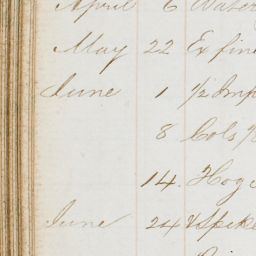 April 6 Water
May 22 Ex fine
June 1 1/2 Imp
8 Cols
14. Hog
June 24 Spike